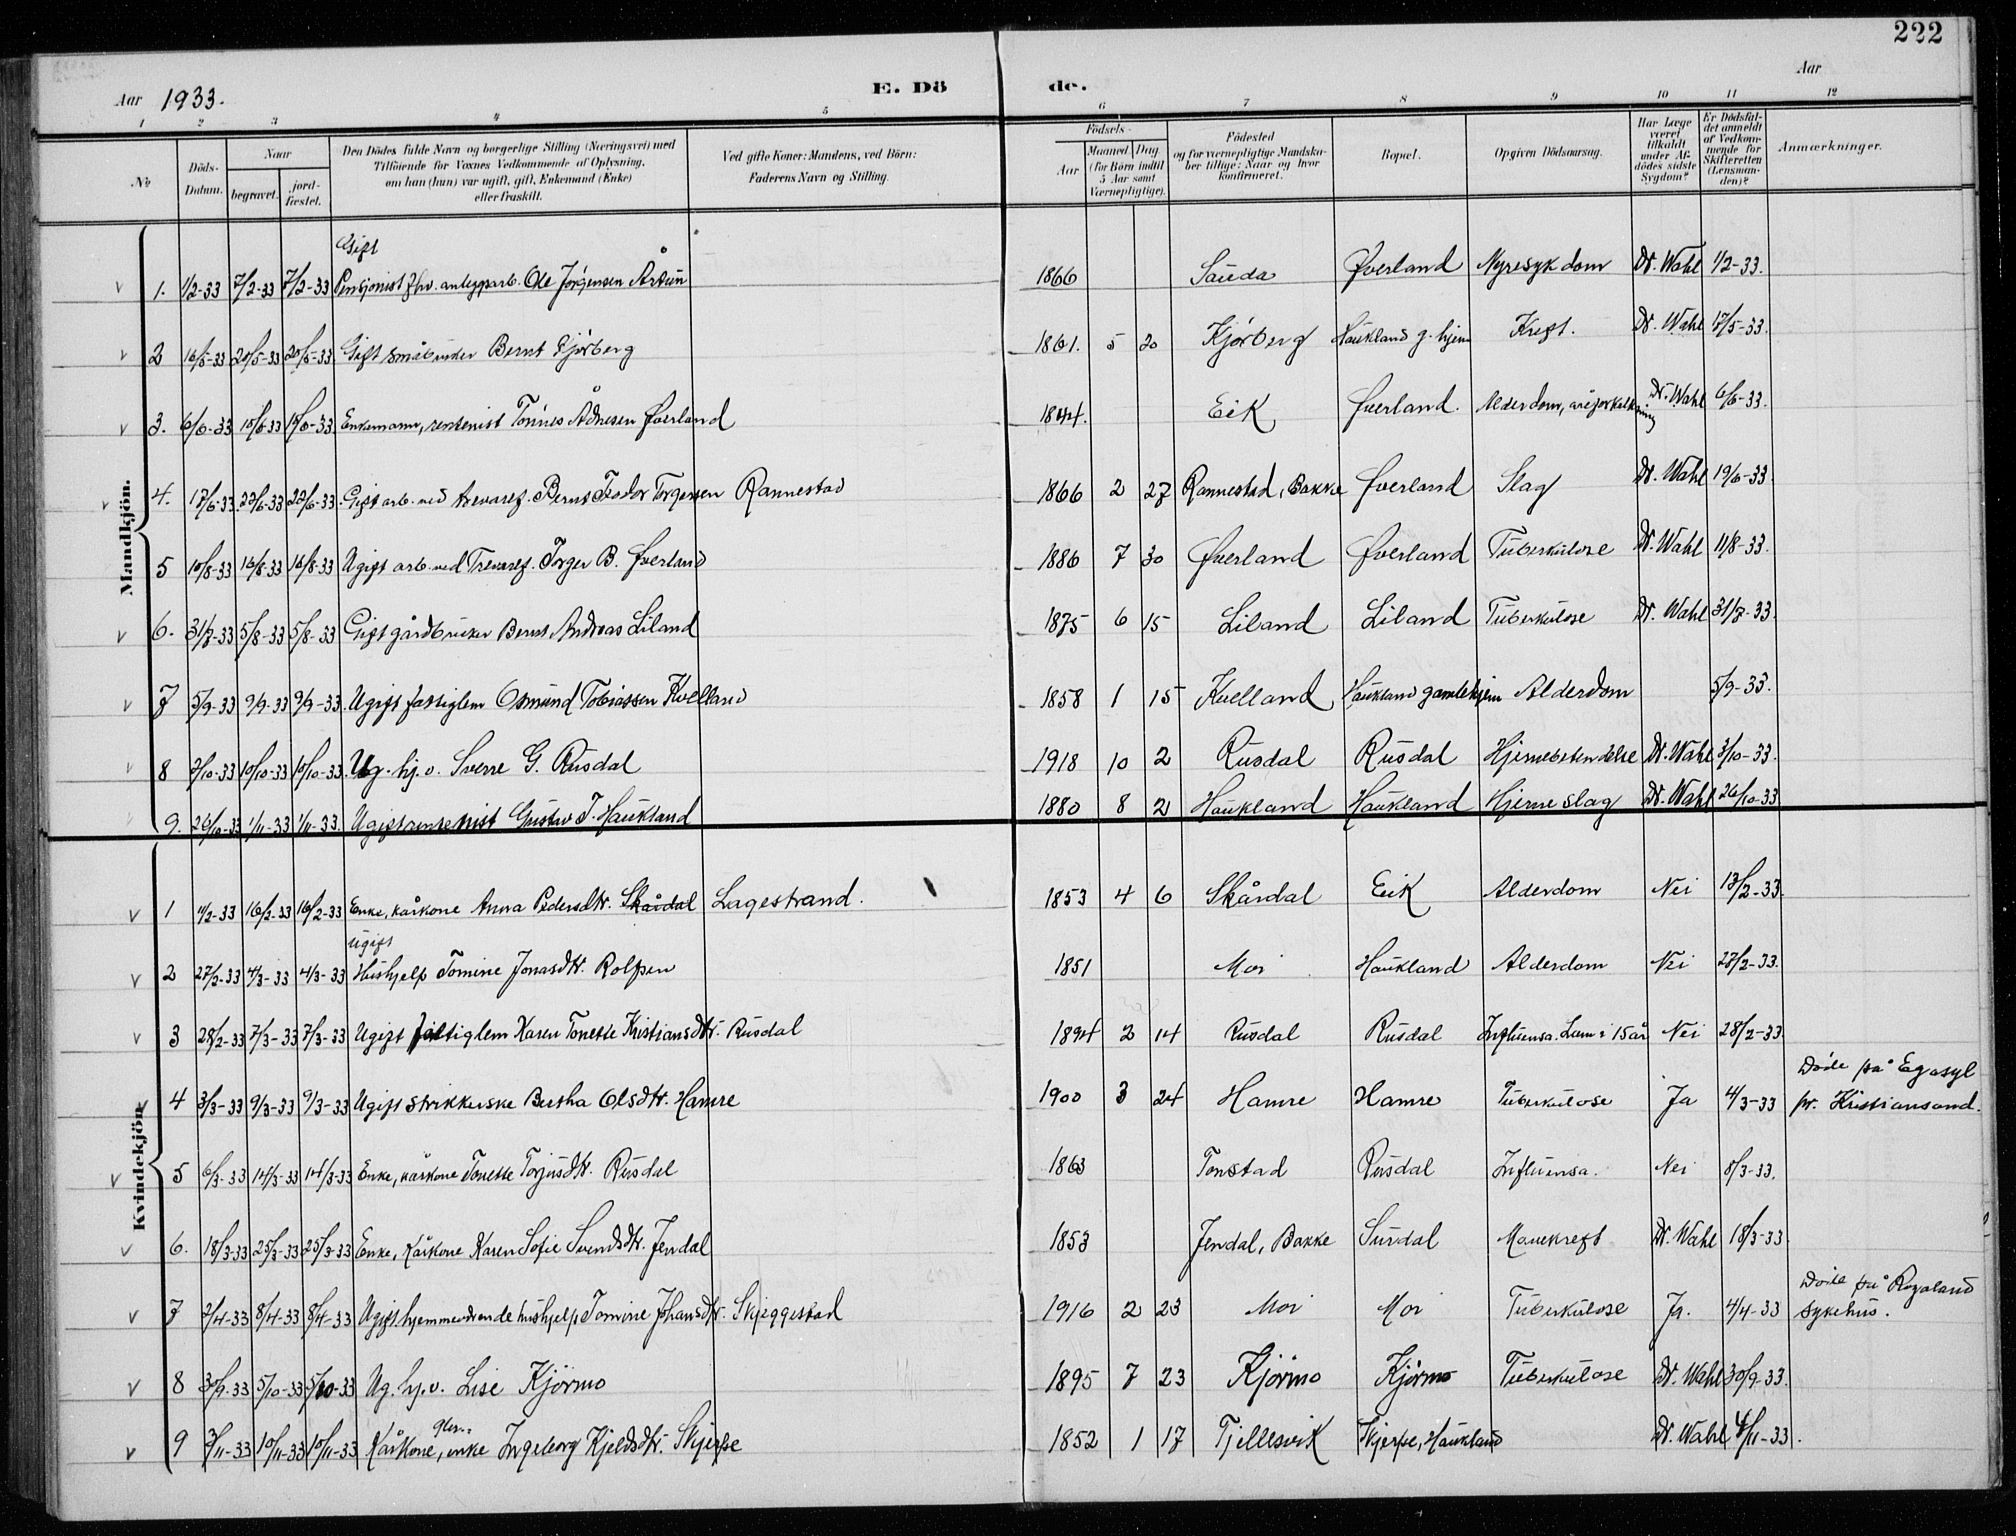 222
Aar 1933.
E. Dö de.
Aar
1 2 3 4 5 6 7 8 9 10 11 12
№
Döds-Datum.
Naar
begravet.
jord-fæstet.
Den Dödes fulde Navn og borgerlige Stilling (Næringsvei) med
Tilföiende for Voxnes Vedkommende af Oplysning,
om han (hun) var ugift, gift, Enkemand (Enke)
eller fraskilt.
Ved gifte Koner: Mandens, ved Börn:
Faderens Navn og Stilling.
Födsels-
Aar
Maaned. Dag
(for Börn indtil
5 Aar samt
Værnepligtige).
Födested
og for værnepligtige Mandska-
ber tillige: Naar og hvor
konfirmeret.
Bopæl.
Opgiven Dödsaarsag.
Har Læge
været
tilkaldt
under Af-
dödes sidste
Sygdom?
Er Dödsfal-
det anmeldt
af Vedkom-
mende for
Skifteretten
(Lensman-
den)?
Anmærkninger.
Mandkjön.
Gift
1. 1/2-33 7/2-33 7/2-33 Pensjonist fhv. anleggsarb. Ole Jørgensen Årtun 1866 Sauda Øverland Nyresykdom Dr. Wahl 1/2-33.
2 16/5-33 20/5-33 20/5-33 Gift småbruker Bernt Kjørberg 1861. 5 20 Kjørberg Haukland g. hjem Kreft. Dr. Wahl 17/5-33.
3. 6/6-33 10/6-33 10/6-33 Enkemann, rentenist Tønnes Ådnesen Øverland 1844. Eik Øverland. Alderdom, åreforkalkning Dr. Wahl 6/6-33.
4. 17/6-33 22/6-33 22/6-33 Gift arb. ved trevaref. Bernt Teodor Torgersen Rannestad 1866 2 27 Rannestad, Bakke Øverland Slag Dr. Wahl 19/6-33.
5 10/8-33 16/8-33 16/8-33 Ugift arb. ved Trevaref. Torger B. Øverland 1886 7 30 Øverland Øverland Tuberkulose Dr. Wahl 11/8-33.
6. 31/7-33 5/8-33 5/8-33 Gift gårdbruker Bernt Andreas Liland 1875 6 15 Liland Liland Tuberkulose Dr. Wahl 31/7-33.
7 5/9-33 9/9-33 9/9-33 Ugift fattiglem Osmund Tobiassen Kvelland 1858 1 15 Kvelland Haukland gamlehjem Alderdom 5/9-33.
8 3/10-33 10/10-33 10/10-33 Ug. hj. v. Sverre G. Rusdal 1918 10 2 Rusdal Rusdal Hjernebetendelse Dr. Wahl 3/10-33.
9. 26/10-33 1/11-33 1/11-33 Ugift rentenist Gustav T. Haukland 1880 8 21 Haukland Haukland Hjerneslag Dr. Wahl 26/10-33
Kvindekjön.
1 11/2-33 16/2-33 16/2-33 Enke, kårkone Anna Pedersdtr. Skårdal Lagestrand. 1853 4 6 Skårdal Eik Alderdom Nei 13/2-33.
ugift
2 27/2-33 4/3-33 4/3-33 Hushjelp Tomine Jonasdtr. Rolfsen 1851 Moi Haukland Alderdom Nei 27/2-33.
3 28/2-33 7/3-33 7/3-33 Ugift fattiglem Karen Tonette Kristiansdtr. Rusdal 1894 2 14 Rusdal Rusdal Influensa. Lam i 15 år Nei 28/2-33.
4 3/3-33 9/3-33 9/3-33 Ugift strikkerske Bertha Olsdtr. Hamre 1900 3 24 Hamre Hamre Tuberkulose Ja 4/3-33 Døde på Eg asyl
pr. Kristiansand.
5 6/3-33 14/3-33 14/3-33 Enke, kårkone Tonette Torjusdtr. Rusdal 1863 Tonstad Rusdal Influensa. Nei 8/3-33.
6. 18/3-33 25/3-33 25/3-33 Enke, kårkone Karen Sofie Svendsdtr. Jendal 1853 Jendal, Bakke Surdal Mavekreft Dr. Wahl 18/3-33
7 2/4-33 8/4-33 8/4-33 Ugift hjemmeværende hushjelp Tomine Johansdtr. Skjeggestad 1916 2 23 Moi Moi Tuberkulose Ja. 4/4-33 Døde på Rogaland
sykehus.
8 30/9-33 5/10-33 5/10-33 Ug. hj. v. Lise Kjørmo 1895 7 23 Kjørmo Kjørmo Tuberkulose Dr. Wahl 30/9-33.
9 3/11-33 10/11-33 10/11-33 Kårkone, enke Ingeborg Kjeldsdtr. Skjerpe 1852 1 17 Tjellesvik Skjerpe, Haukland Dr. Wahl 4/11-33.